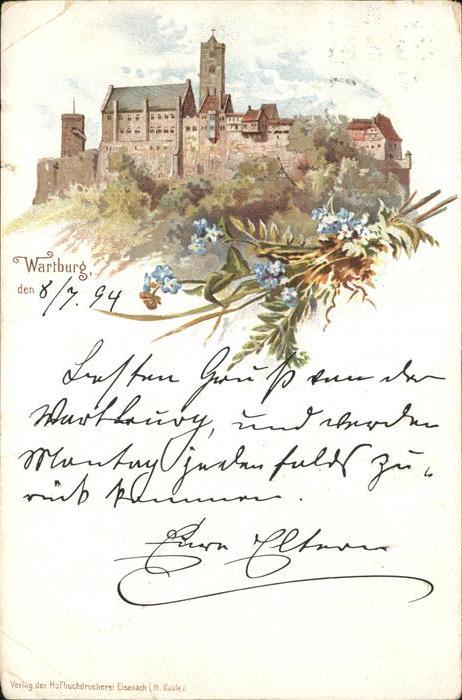 Wartburg,
den 8/7. 94
Besten Gruß von der
Wartburg, und werden
Montag jedenfalls zu-
rück kommen.
Eure Eltern
Verlag der Hofbuchdruckerei Eisenach (H. Kahle).